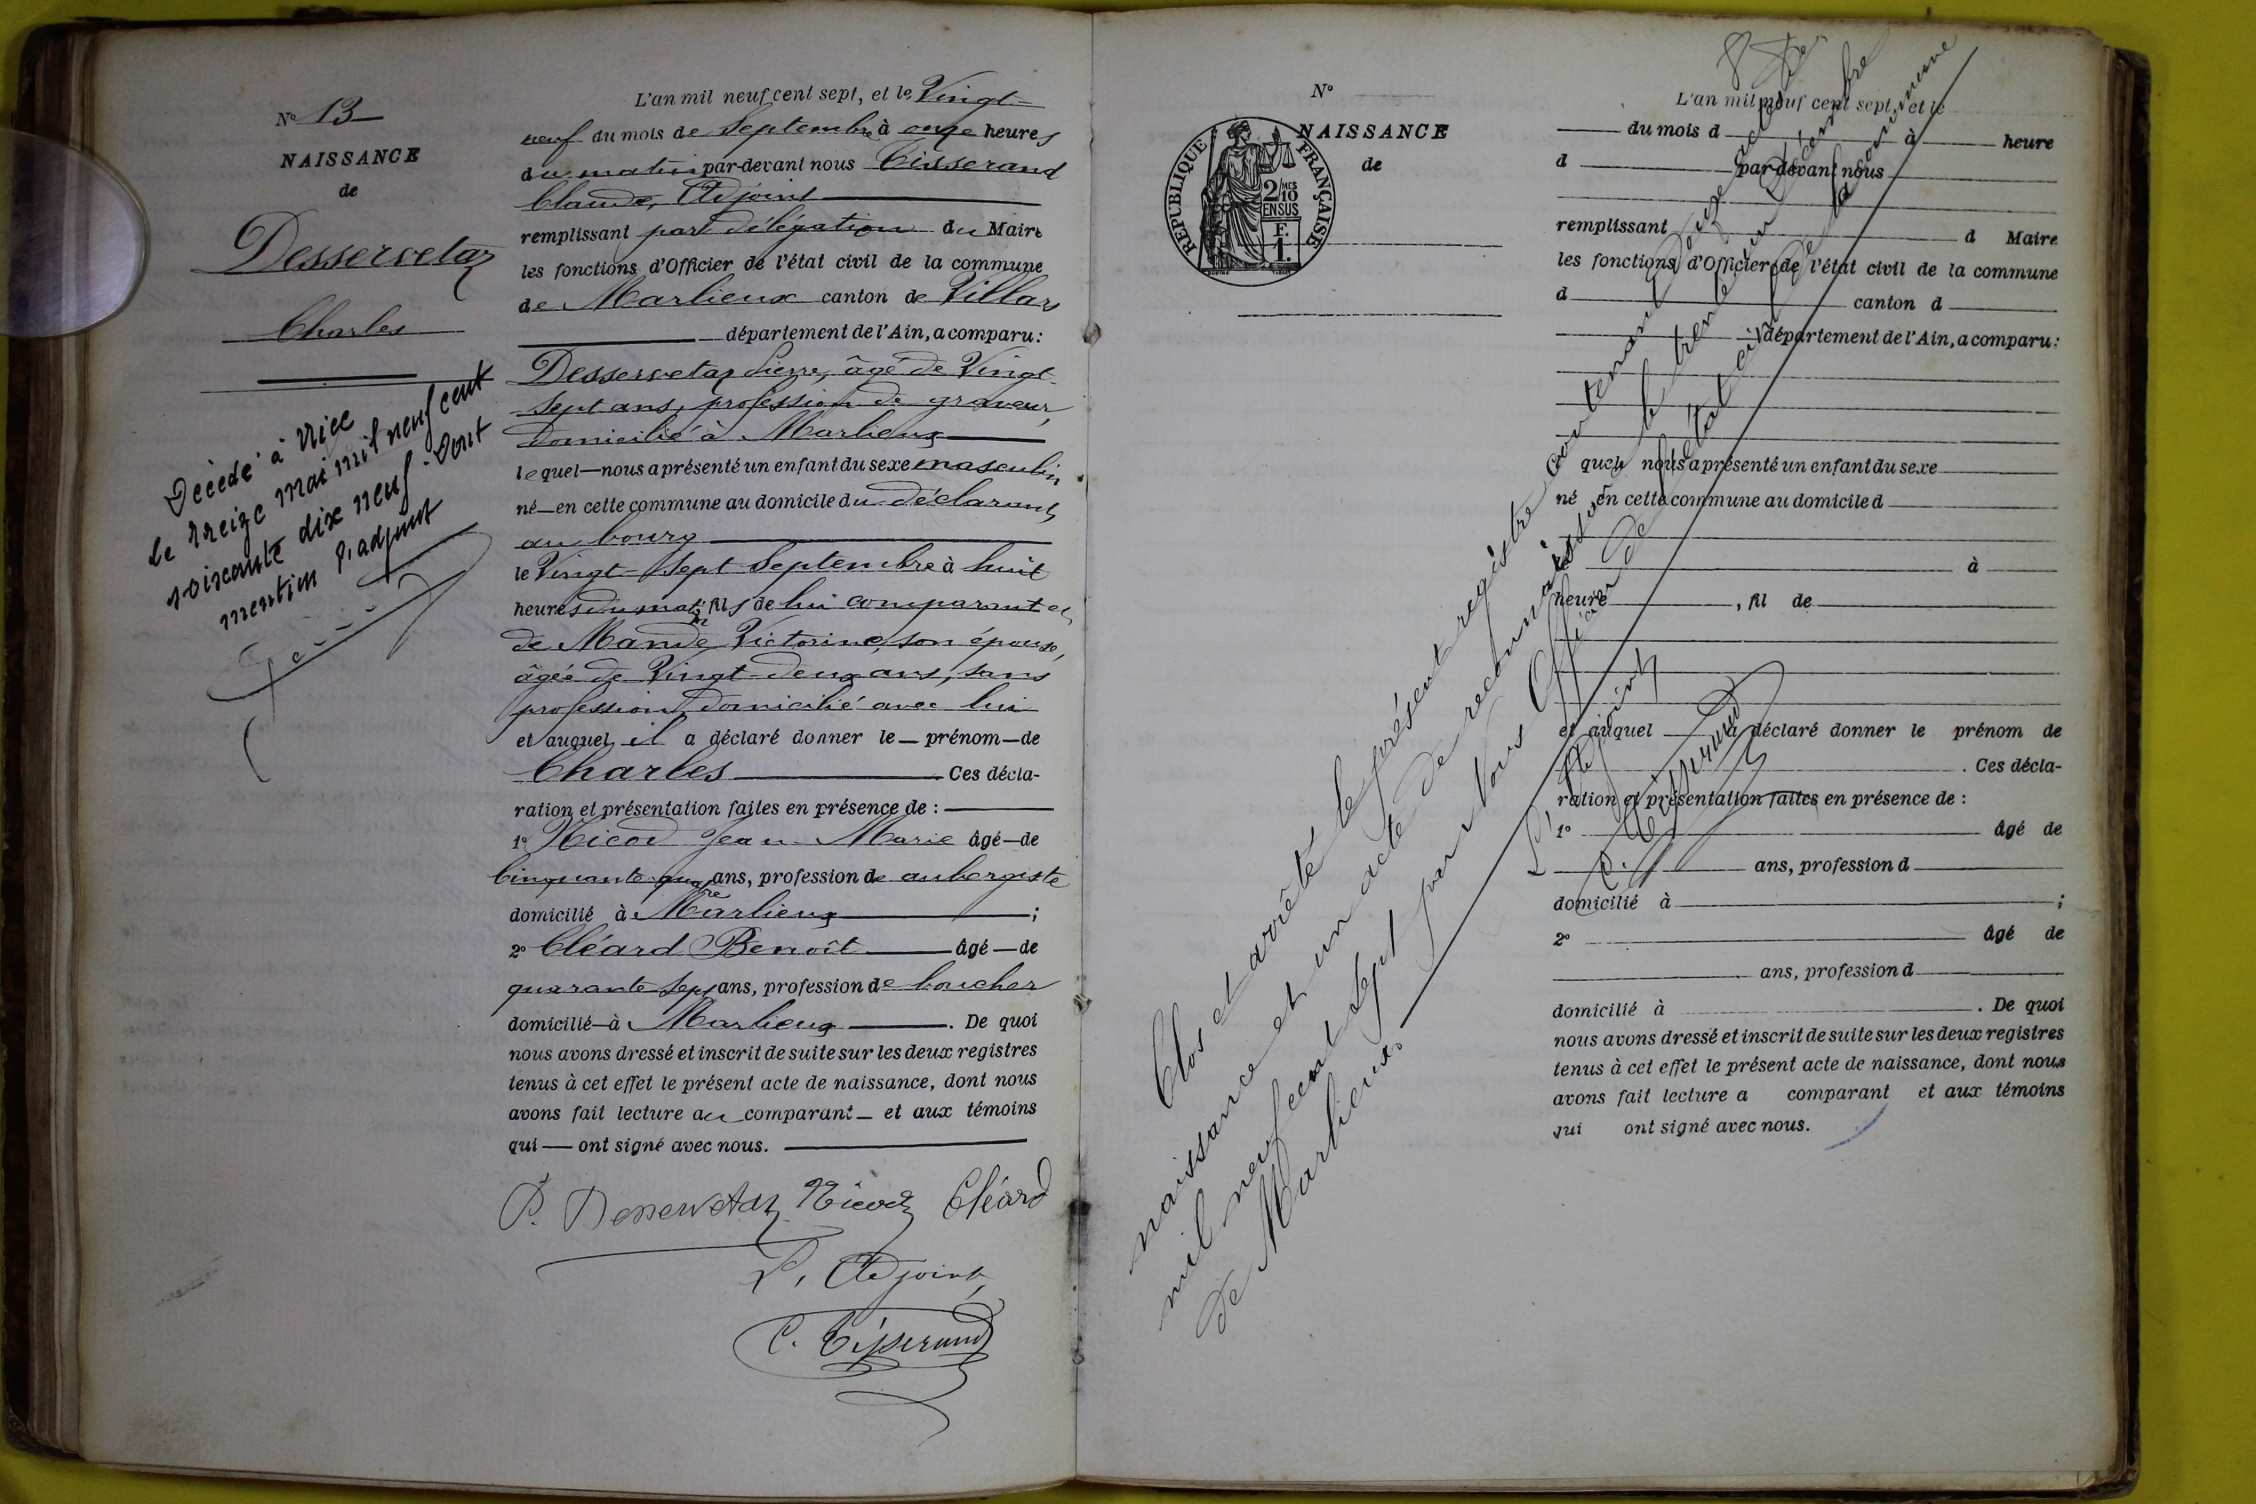 Nº 13
NAISSANCE
de
Desservetaz
Charles
Décédé à Nice
le treize mai mil neuf cent
soixante dix neuf. Dont
mention l'adjoint
L'an mil neuf cent sept, et le Vingt-
neuf du mois de Septembre à onze heures
du matin par-devant nous Tisserand
Claude, Adjoint
remplissant par délégation du Maire
les fonctions d'Officier de l'état civil de la commune
de Marlieux canton de Villars
département de l'Ain, a comparu:
Desservetaz Pierre, âgé de Vingt-
sept ans, profession de graveur,
domicilié à Marlieux
lequel nous a présenté un enfant du sexe masculin
né en cette commune au domicile du déclarant,
au bourg
le Vingt-sept Septembre à huit
heures du matin fils de lui comparant et
de Mande Victorine, son épouse,
âgée de Vingt-deux ans, sans
profession, domicilié avec lui
et auquel il a déclaré donner le prénom de
Charles Ces décla-
ration et présentation faites en présence de :
1º Nicod Jean Marie âgé de
Cinquante-quatre ans, profession de aubergiste
domicilié à Marlieux ;
2º Cléard Benoît âgé de
quarante sept ans, profession de boucher
domicilié à Marlieux . De quoi
nous avons dressé et inscrit de suite sur les deux registres
tenus à cet effet le présent acte de naissance, dont nous
avons fait lecture au comparant et aux témoins
qui ont signé avec nous.
P. Desservetaz Nicod Cléard
L'Adjoint,
C. Tisserand
Nº
NAISSANCE
de
RÉPUBLIQUE FRANÇAISE
2/10 MES
EN SUS
F.
1.
L'an mil neuf cent sept, et le
du mois d à heure
d par-devant nous
remplissant d Maire
les fonctions d'Officier de l'état civil de la commune
d canton d
département de l'Ain, a comparu:
quel nous a présenté un enfant du sexe
né en cette commune au domicile d
à
heure , fil de
et auquel a déclaré donner le prénom de
. Ces décla-
ration et présentation faites en présence de :
1º âgé de
ans, profession d
domicilié à ;
2º âgé de
ans, profession d
domicilié à . De quoi
nous avons dressé et inscrit de suite sur les deux registres
tenus à cet effet le présent acte de naissance, dont nous
avons fait lecture a comparant et aux témoins
qui ont signé avec nous.
Clos et arrêté le présent registre contenant douze actes de
naissance et un acte de reconnaissance le trente un Décembre
mil neuf cent sept par nous Officier de l'état civil de la commune
de Marlieux.
L'Adjoint,
C. Tisserand